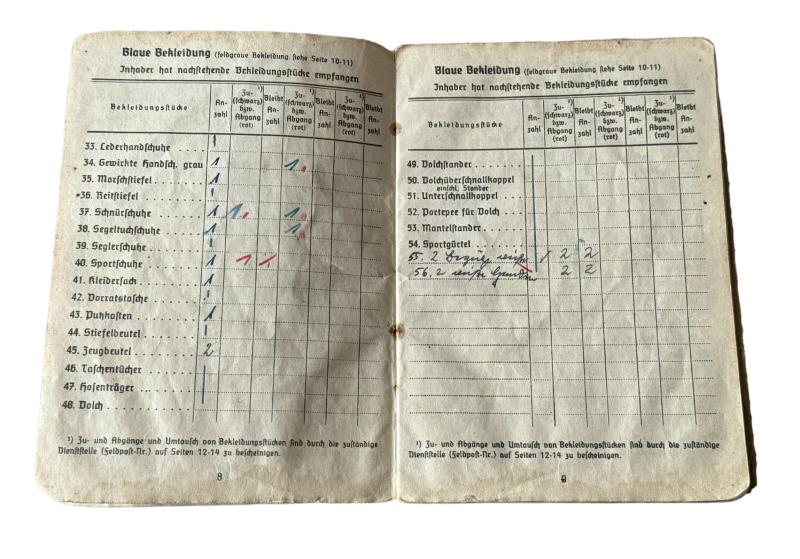 Blaue Bekleidung (feldgraue Bekleidung siehe Seite 10-11)
Inhaber hat nachstehende Bekleidungsstücke empfangen
Bekleidungsstücke An-zahl Zu-(schwarz) bzw. Abgang (rot) ¹) Bleibt An-zahl Zu-(schwarz) bzw. Abgang (rot) ¹) Bleibt An-zahl Zu-(schwarz) bzw. Abgang (rot) ¹) Bleibt An-zahl
33. Lederhandschuhe
34. Gewirkte Handsch. grau 1 1
35. Marschstiefel 1
36. Reitstiefel
37. Schnürschuhe 1 1 1
38. Segeltuchschuhe 1 1
39. Seglerschuhe
40. Sportschuhe 1 1
41. Kleidersack 1
42. Vorratstasche
43. Putzkasten 1
44. Stiefelbeutel
45. Zeugbeutel 2
46. Taschentücher
47. Hosenträger
48. Dolch
¹) Zu- und Abgänge und Umtausch von Bekleidungsstücken sind durch die zuständige
Dienststelle (Feldpost-Nr.) auf Seiten 12-14 zu bescheinigen.
8
Blaue Bekleidung (feldgraue Bekleidung siehe Seite 10-11)
Inhaber hat nachstehende Bekleidungsstücke empfangen
Bekleidungsstücke An-zahl Zu-(schwarz) bzw. Abgang (rot) ¹) Bleibt An-zahl Zu-(schwarz) bzw. Abgang (rot) ¹) Bleibt An-zahl Zu-(schwarz) bzw. Abgang (rot) ¹) Bleibt An-zahl
49. Dolchstander
50. Dolchüberschnallkoppel
einschl. Stander
51. Unterschnallkoppel
52. Portepee für Dolch
53. Mantelstander
54. Sportgürtel
55. 2 Bezüge 2 2
56. 2 2 2
¹) Zu- und Abgänge und Umtausch von Bekleidungsstücken sind durch die zuständige
Dienststelle (Feldpost-Nr.) auf Seiten 12-14 zu bescheinigen.
9